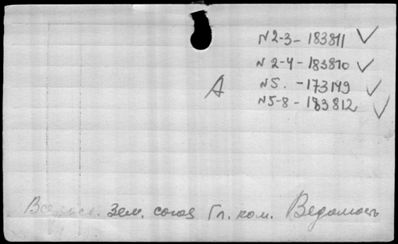 N 2-3 - 183811 ✓
N 2-4 - 183810 ✓
А
N 5. - 173149 ✓
N 5-8 - 183812 ✓
Зем. союз Гл. ком. Ведомость